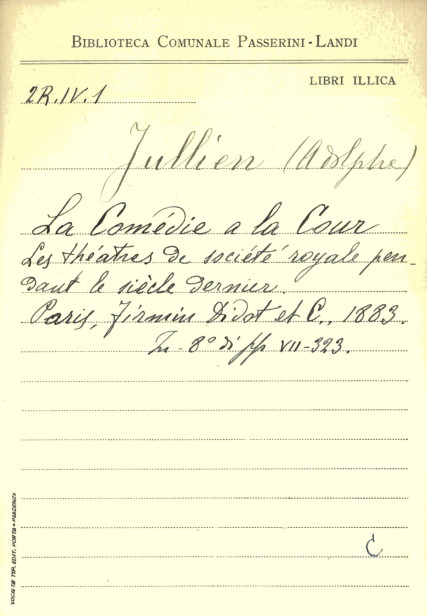 BIBLIOTECA COMUNALE PASSERINI-LANDI
LIBRI ILLICA
2R.IV.1
Jullien (Adolphe)
La Comédie a la Cour
Les théatres de société royale pen-
dant le siècle dernier.
Paris, Firmin Didot et C., 1883.
In-8° di pp VII-323.
C
SOCIETÀ TIP. EDIT. PORTA - PIACENZA